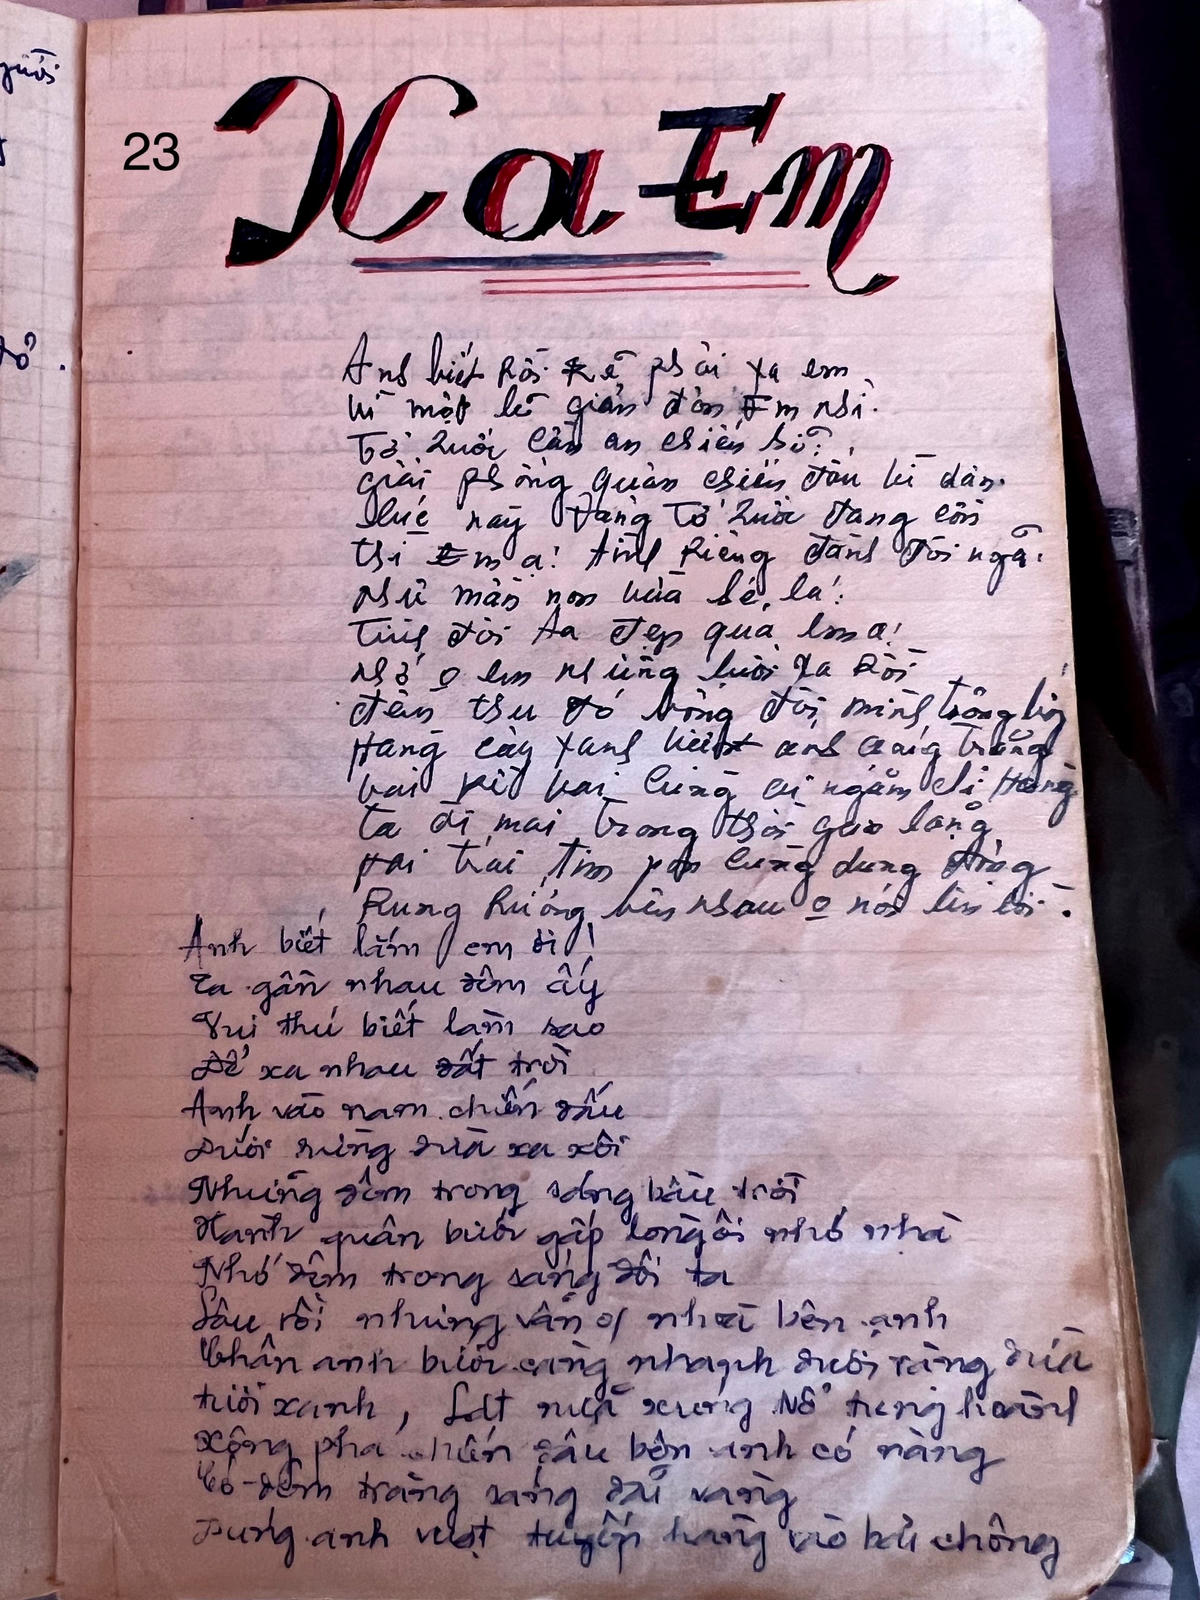 23
Xa Em
Anh biết rồi sẽ phải xa em
Vì một lẽ giản đơn Em nhỉ.
Tổ Quốc cần an chiến sĩ.
giải phóng quân chiến đấu vì dân.
lúc này Đảng Tổ Quốc đang cần
thì Em ạ! tình riêng đành đôi ngả.
như mầm non vừa hé lá!
Tình đôi ta đẹp quá em ạ!
nhớ o em những buổi xa rồi
đêm thu đó bóng đôi mình trông
Hàng cây xanh biết ánh ánh trăng
vai kề vai cùng ngắm chị Hằng
ta đi mãi trong thời gian lặng
hai trái tim cùng dung động
Rung Rưởng bên nhau o nói lên lời.
Anh biết lắm em ơi!
Ta gần nhau đêm ấy
Vui thú biết làm sao
Để xa nhau đất trời
Anh vào nam chiến đấu
Dưới rừng dừa xa xôi
Những đêm trong sáng bầu trời
Hành quân bước gấp lòng ôi nhớ nhà
Nhớ đêm trong sáng đôi ta
Lâu rồi nhưng vẫn bên anh
Chân anh bước càng nhanh dưới rặng dừa
tươi xanh, Sút nữa xuống Nổ tung hoành
Xông pha chiến đấu bên anh có nàng
Có đêm trăng sáng vàng
anh vượt tuyến hàng vào bãi chông